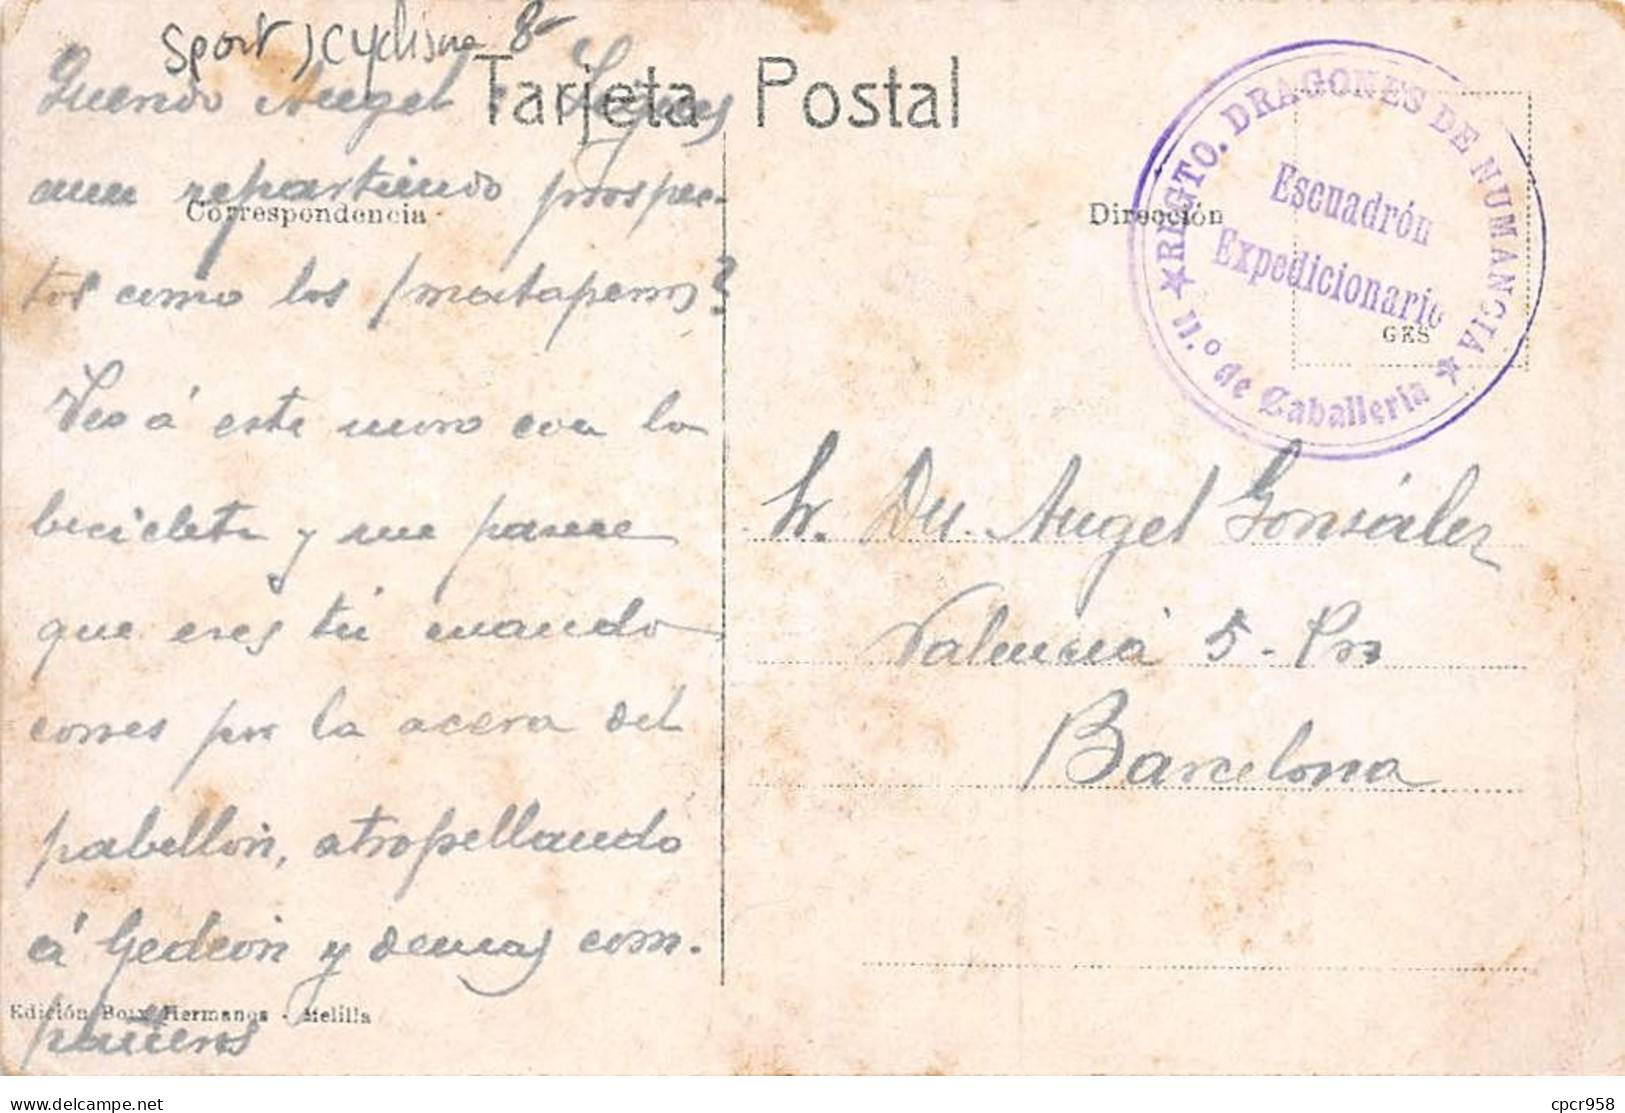 Sport) Cyclisme 8-
Tarjeta Postal
Correspondencia
Dirección
Querido Angel: Sigues
aun repartiendo prospec-
tos como los mataperros?
Veo á este moro con la
bicicleta y me parece
que eres tú cuando
corres por la acera del
pabellón, atropellando
á Gedeón y demas com-
pañeros
REGTO. DRAGONES DE NUMANCIA
Escuadrón
Expedicionario
11.º de Caballeria
GES
Sr. Dn. Angel González
Valencia 5 -
Barcelona
Edición Boix Hermanos - Melilla
delcampe.net
cpcr958